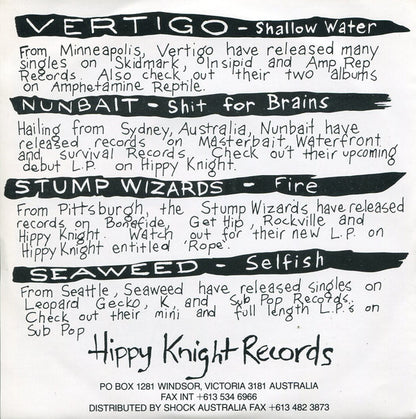 VERTIGO - Shallow Water
From Minneapolis, Vertigo have released many
singles on Skidmark, Insipid and Amp Rep
Records. Also check out their two albums
on Amphetamine Reptile.
NUNBAIT - Shit for Brains
Hailing from Sydney, Australia, Nunbait have
released records on Masterbait, Waterfront
and survival Records. Check out their upcoming
debut L.P. on Hippy Knight.
STUMP WIZARDS - Fire
From Pittsburgh, the Stump Wizards have released
records on Bonafide, Get Hip, Rockville and
Hippy Knight. Watch out for their new L.P. on
Hippy Knight entitled 'Rope'.
SEAWEED - Selfish
From Seattle, Seaweed have released singles on
Leopard Gecko, K and Sub Pop Records.
Check out their mini and full length L.P.'s on
Sub Pop
Hippy Knight Records
PO BOX 1281 WINDSOR, VICTORIA 3181 AUSTRALIA
FAX INT +613 534 6966
DISTRIBUTED BY SHOCK AUSTRALIA FAX +613 482 3873